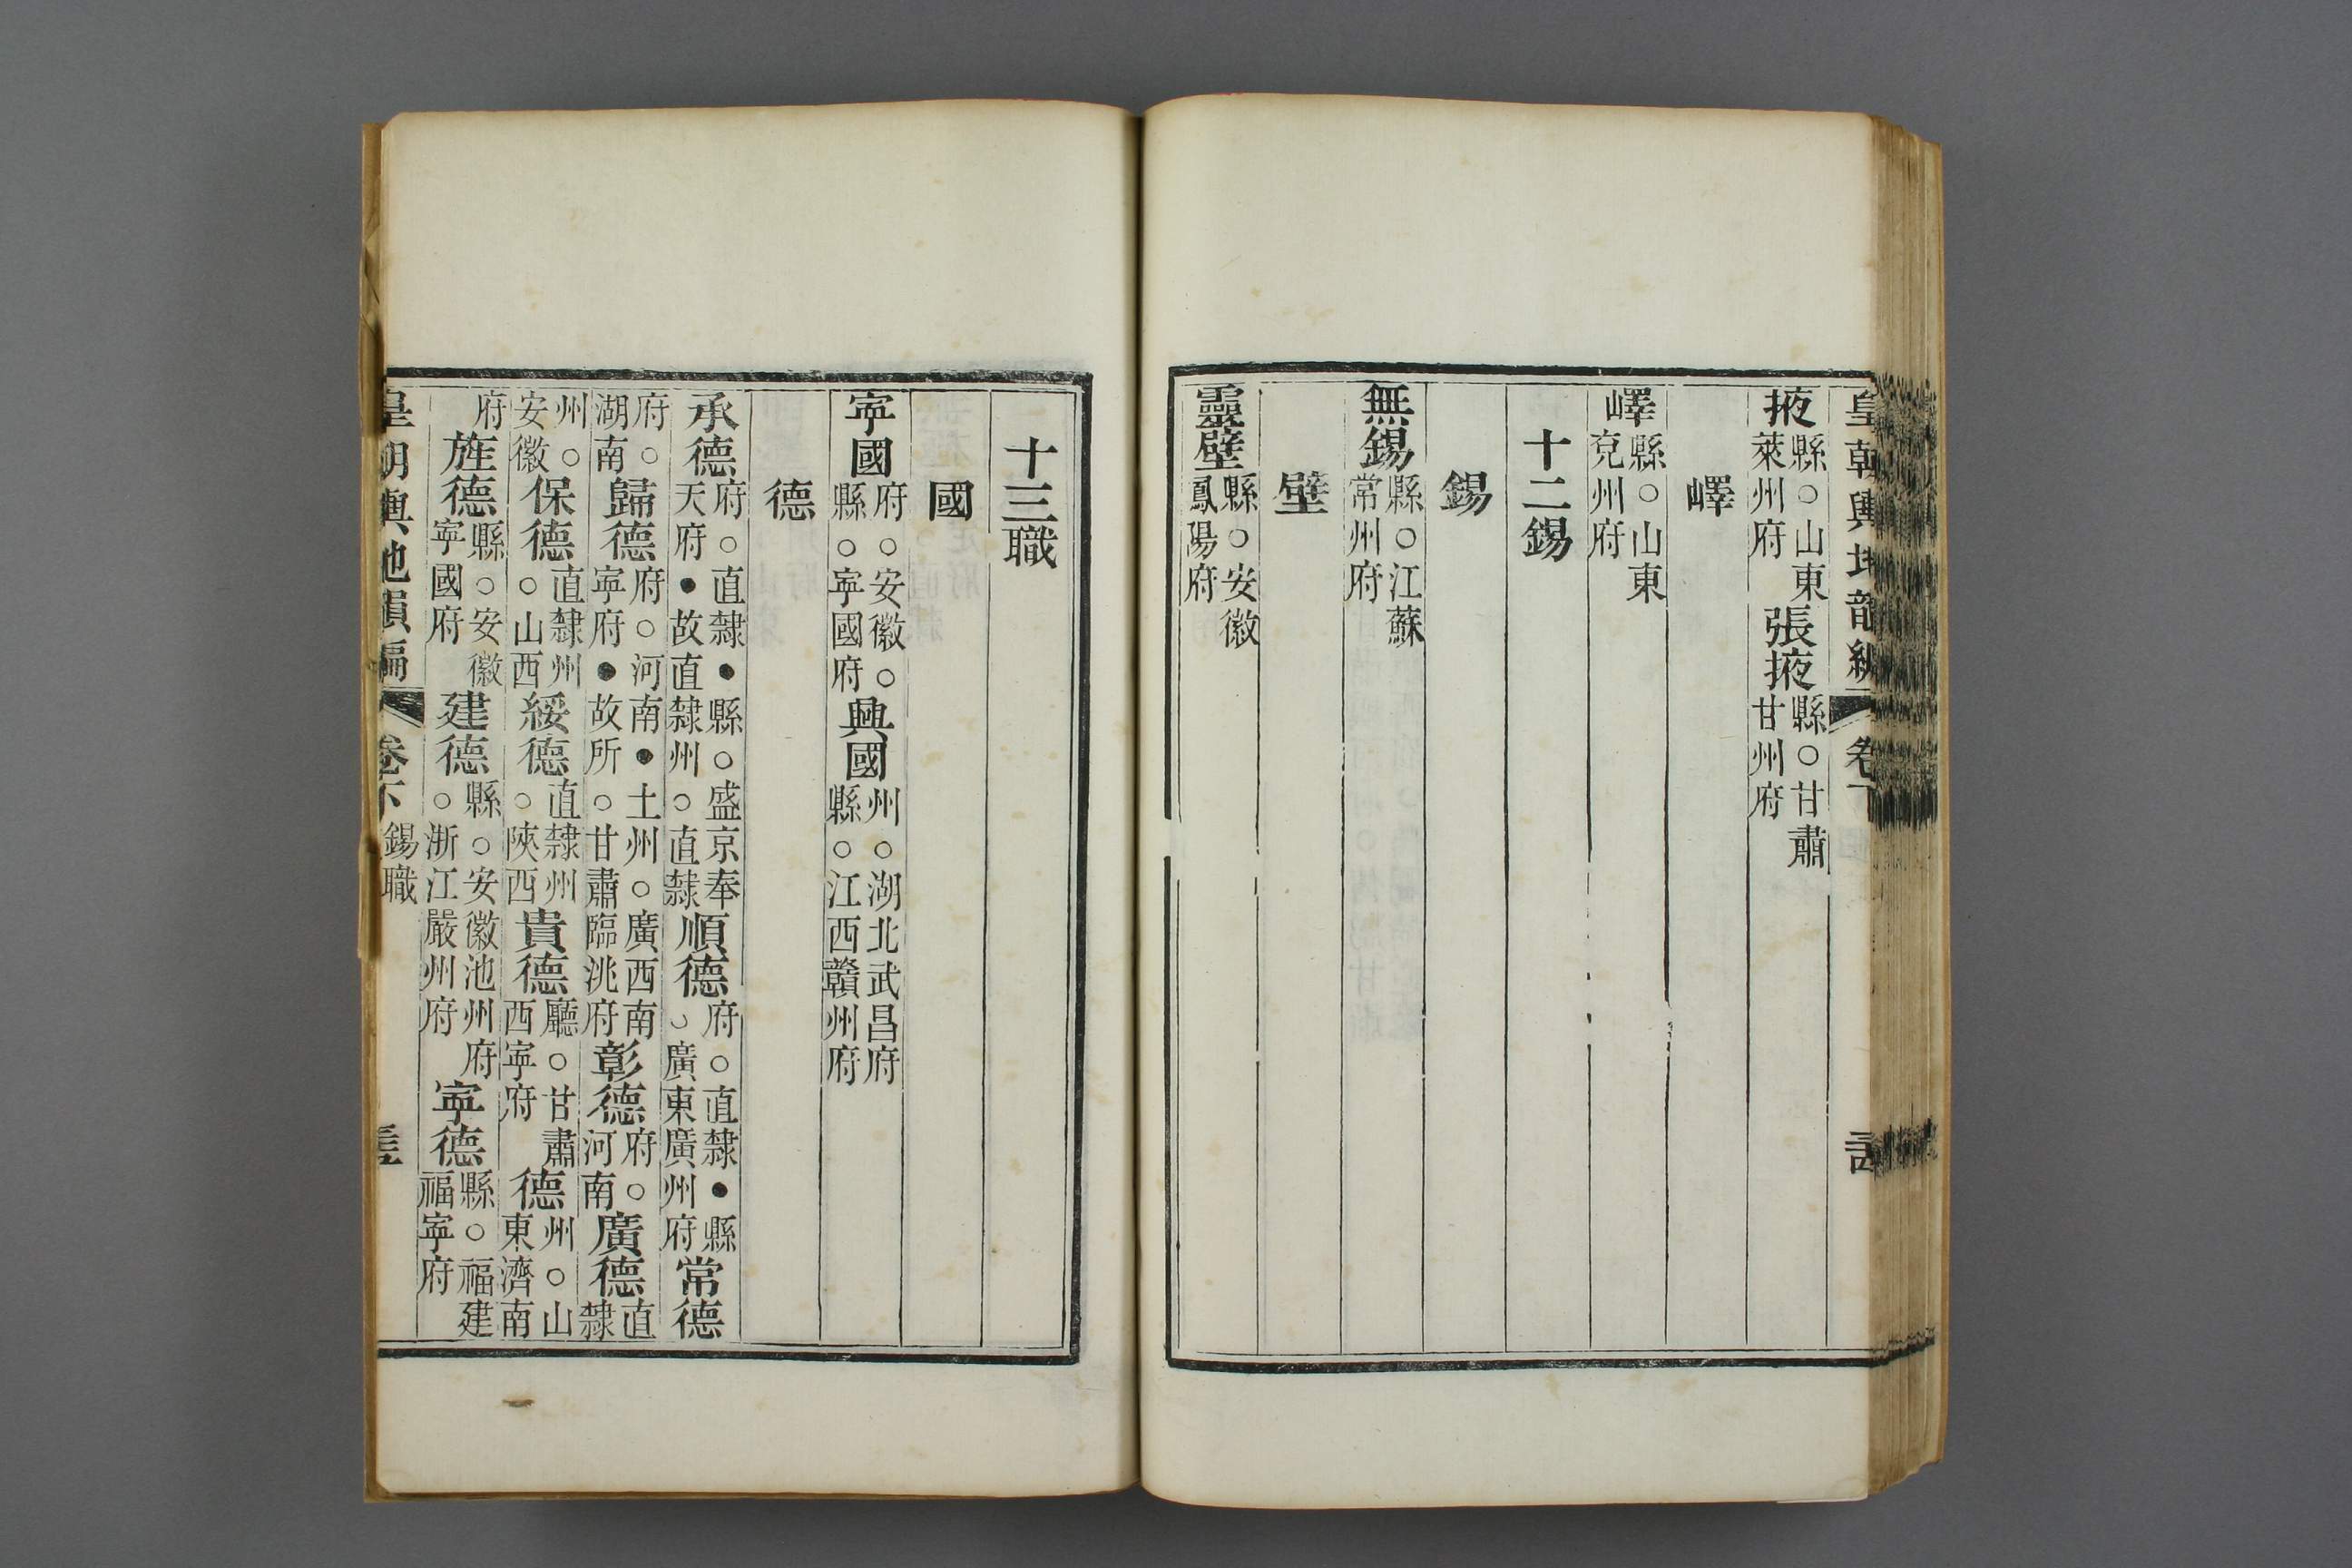 皇朝輿地韻編 卷下
掖縣○山東萊州府 張掖縣○甘肅甘州府
嶧
嶧縣○山東兗州府
十二錫
錫
無錫縣○江蘇常州府
壁
靈壁縣○安徽鳳陽府
十三職
國
寧國府○安徽○縣○寧國府 興國州○湖北武昌府縣○江西贛州府
德
承德府○直隸●縣○盛京奉天府●故直隸州○直隸 順德府○直隸●縣○廣東廣州府 常德
府○湖南 歸德府○河南●土州○廣西南寧府●故所○甘肅臨洮府 彰德府○河南 廣德直隸
州○安徽 保德直隸州○山西 綏德直隸州○陝西 貴德廳○甘肅西寧府 德州○山東濟南
府 旌德縣○安徽寧國府 建德縣○安徽池州府○浙江嚴州府 寧德縣○福建福寧府
皇朝輿地韻編 卷下 錫職